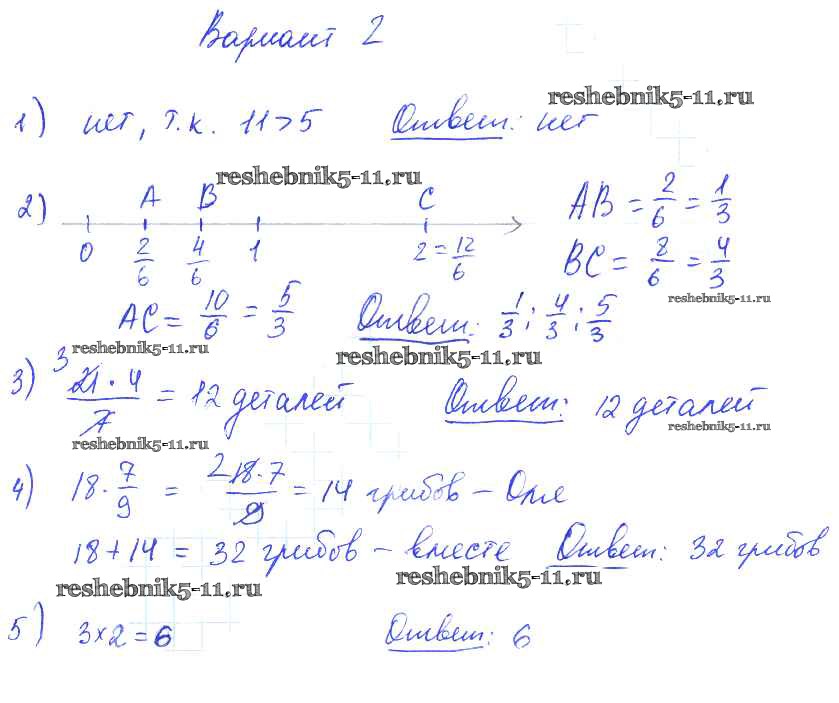 Вариант 2
reshebnik5-11.ru
1) нет, т.к. 11>5 Ответ: нет
reshebnik5-11.ru
2) A B C AB = 2/6 = 1/3
0 2/6 4/6 1 2 = 12/6 BC = 8/6 = 4/3
reshebnik5-11.ru
AC = 10/6 = 5/3 Ответ: 1/3; 4/3; 5/3
reshebnik5-11.ru reshebnik5-11.ru
3) 3 21 · 4 / 7 = 12 деталей Ответ: 12 деталей
reshebnik5-11.ru reshebnik5-11.ru
4) 18 · 7/9 = 2 18 · 7 / 9 = 14 грибов – Оля
18 + 14 = 32 грибов – вместе Ответ: 32 грибов
reshebnik5-11.ru reshebnik5-11.ru
5) 3 × 2 = 6 Ответ: 6